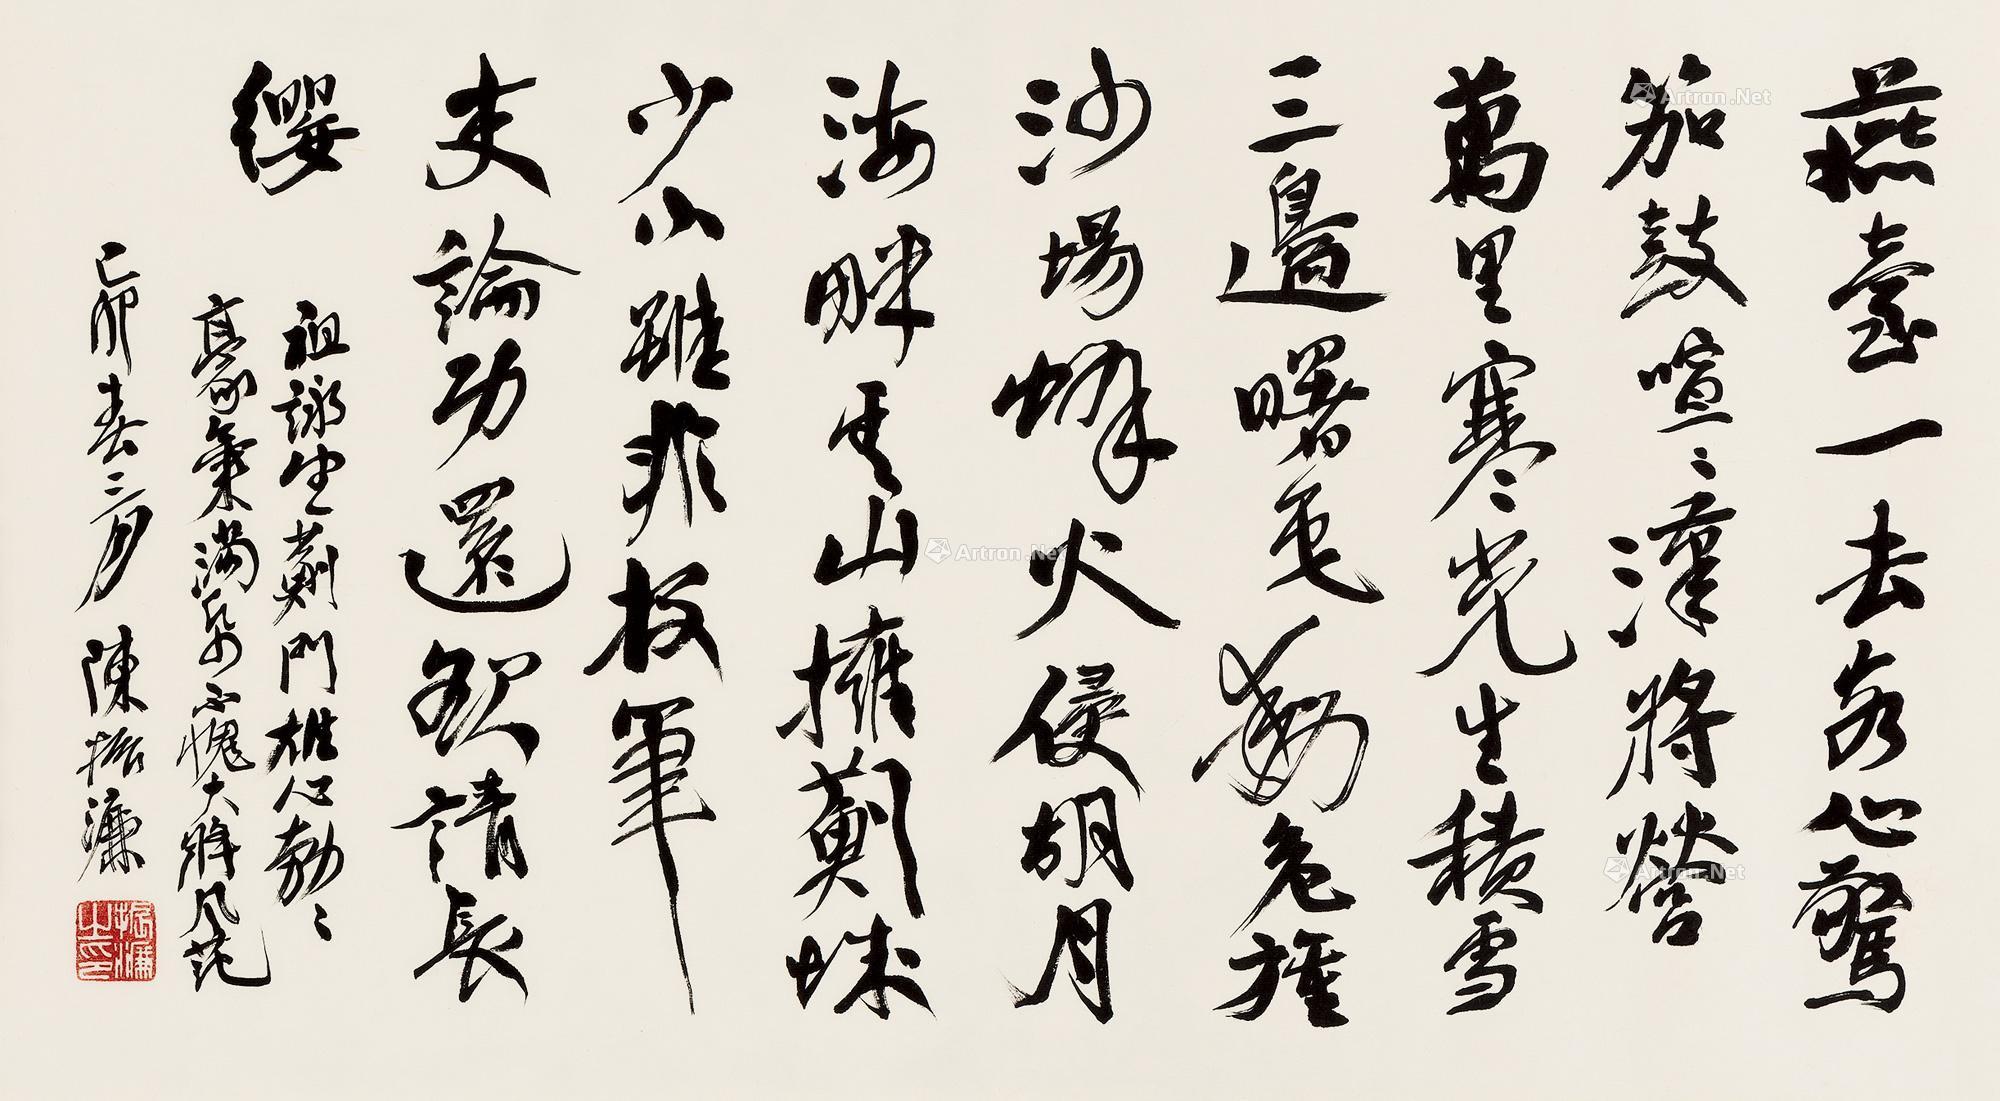 燕臺一去客心驚
笳鼓喧〻漢將營
萬里寒〻光生積雪
三邊曙色動危旌
沙場烽火侵胡月
海畔雲山擁薊城
少小雖非投筆
吏論功還欲請長
纓
祖詠望薊門雄心勃〻
豪氣滿紙不愧大將風範
己卯春三月 陳振濂
振濂之印
Artron.Net
Artron.Net
Artron.Net